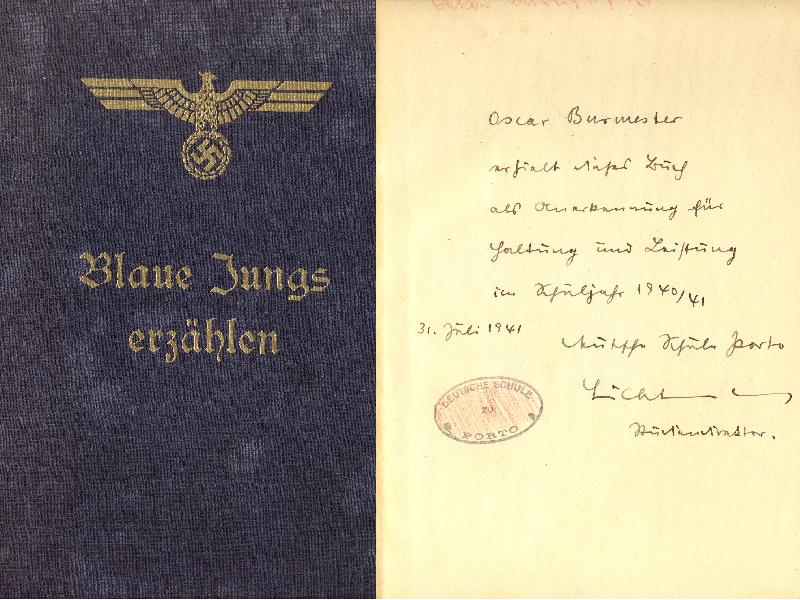 Blaue Jungs
erzählen
Oscar Burmester
erhielt dieses Buch
als Anerkennung für
Haltung und Leistung
im Schuljahr 1940/41
31. Juli 1941
Deutsche Schule Porto
DEUTSCHE SCHULE
ZU
PORTO
Studiendirektor.